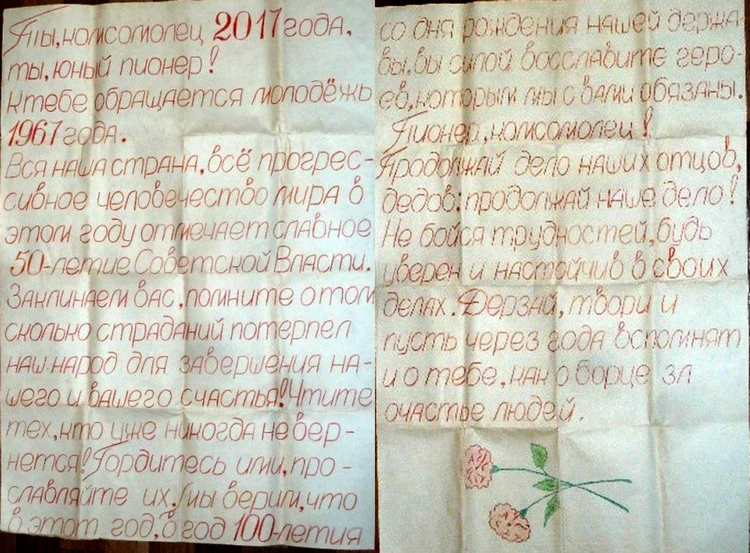 Ты, комсомолец 2017 года,
ты, юный пионер!
К тебе обращается молодёжь
1967 года.
Вся наша страна, всё прогрес-
сивное человечество мира в
этом году отмечает славное
50-летие Советской Власти.
Заклинаем вас, помните о том
сколько страданий потерпел
наш народ для завершения на-
шего и вашего счастья! Чтите
тех, кто уже никогда не вер-
нется! Гордитесь ими, про-
славляйте их. Мы верим, что
в этот год, в год 100-летия
со дня рождения нашей держа-
вы, вы силой восславите геро-
ев, которым мы с вами обязаны.
Пионер, комсомолец!
Продолжай дело наших отцов,
дедов: продолжай наше дело!
Не бойся трудностей, будь
уверен и настойчив в своих
делах. Дерзай, твори и
пусть через года вспомнят
и о тебе, как о борце за
счастье людей.